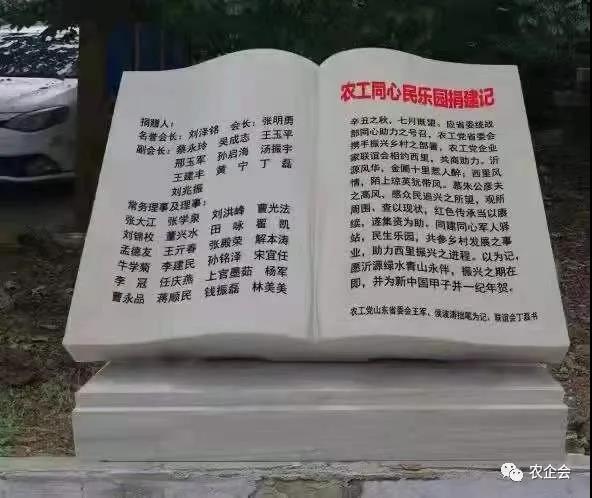 捐赠人：
名誉会长：刘泽铭 会长：张明勇
副会长：蔡永玲 吴成志 王玉平
邢玉军 孙启海 汤振宇
王建丰 黄宁 丁磊
刘兆振
常务理事及理事：
张大江 张学泉 刘洪峰 曹光法
刘锦枚 董兴水 田咏 翟凯
孟德友 王亓春 张殿荣 解本涛
牛学菊 李建民 孙铭泽 宋宜任
李冠 任庆燕 上官墨茹 杨军
曹永品 蒋顺民 钱振磊 林美美
农工同心民乐园捐建记
辛丑之秋，七月既望，应省委统战
部同心助力之号召，农工党省委会
携手振兴乡村之部署，农工党企业
家联谊会相约西里，共商助力。沂
源风华，金圃十里惹人醉；西里风
情，陌上琼英犹带风。慕朱公彦夫
之高风，感众民追兴之所望，观所
周围、查以现状，红色传承当以赓
续，遂集资为助、同建同心军人驿
站，民生乐园，共参乡村发展之事
业，助力西里振兴之进程。以为记，
愿沂源绿水青山永伴，振兴之期在
即，并为新中国甲子并一纪年贺。
农工党山东省委会王军、侯波涛拙笔为记，联谊会丁磊书
农企会